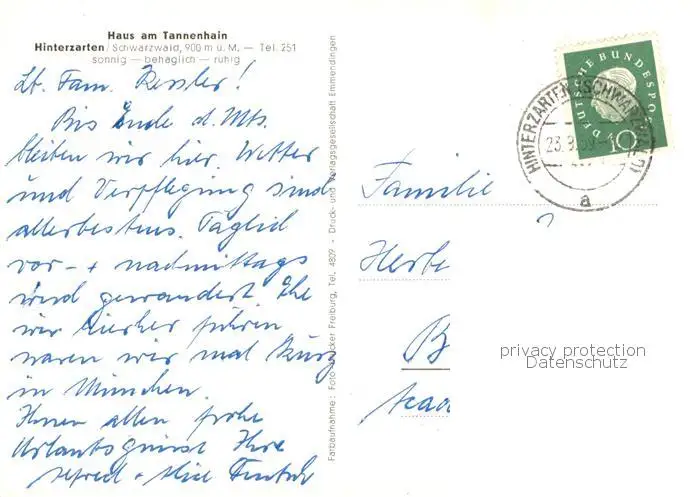 Haus am Tannenhain
Hinterzarten / Schwarzwald, 900 m ü. M. — Tel. 251
sonnig — behaglich — ruhig
Lb. Fam. Kessler!
Bis Ende d. Mts.
bleiben wir hier. Wetter
und Verpflegung sind
allerbestens. Täglich
vor- + nachmittags
wird gewandert. Ehe
wir hierher fuhren
waren wir mal kurz
in München.
Ihnen allen frohe
Urlaubsgrüsse Ihre
Alfred + Alice
Farbaufnahme: Foto Freiburg, Tel. 4809 - Druck- und Verlagsgesellschaft Emmendingen
DEUTSCHE BUNDESPOST
10
HINTERZARTEN (SCHWARZWALD)
23.9.59
a
Familie
Herbe
B
privacy protection
Datenschutz